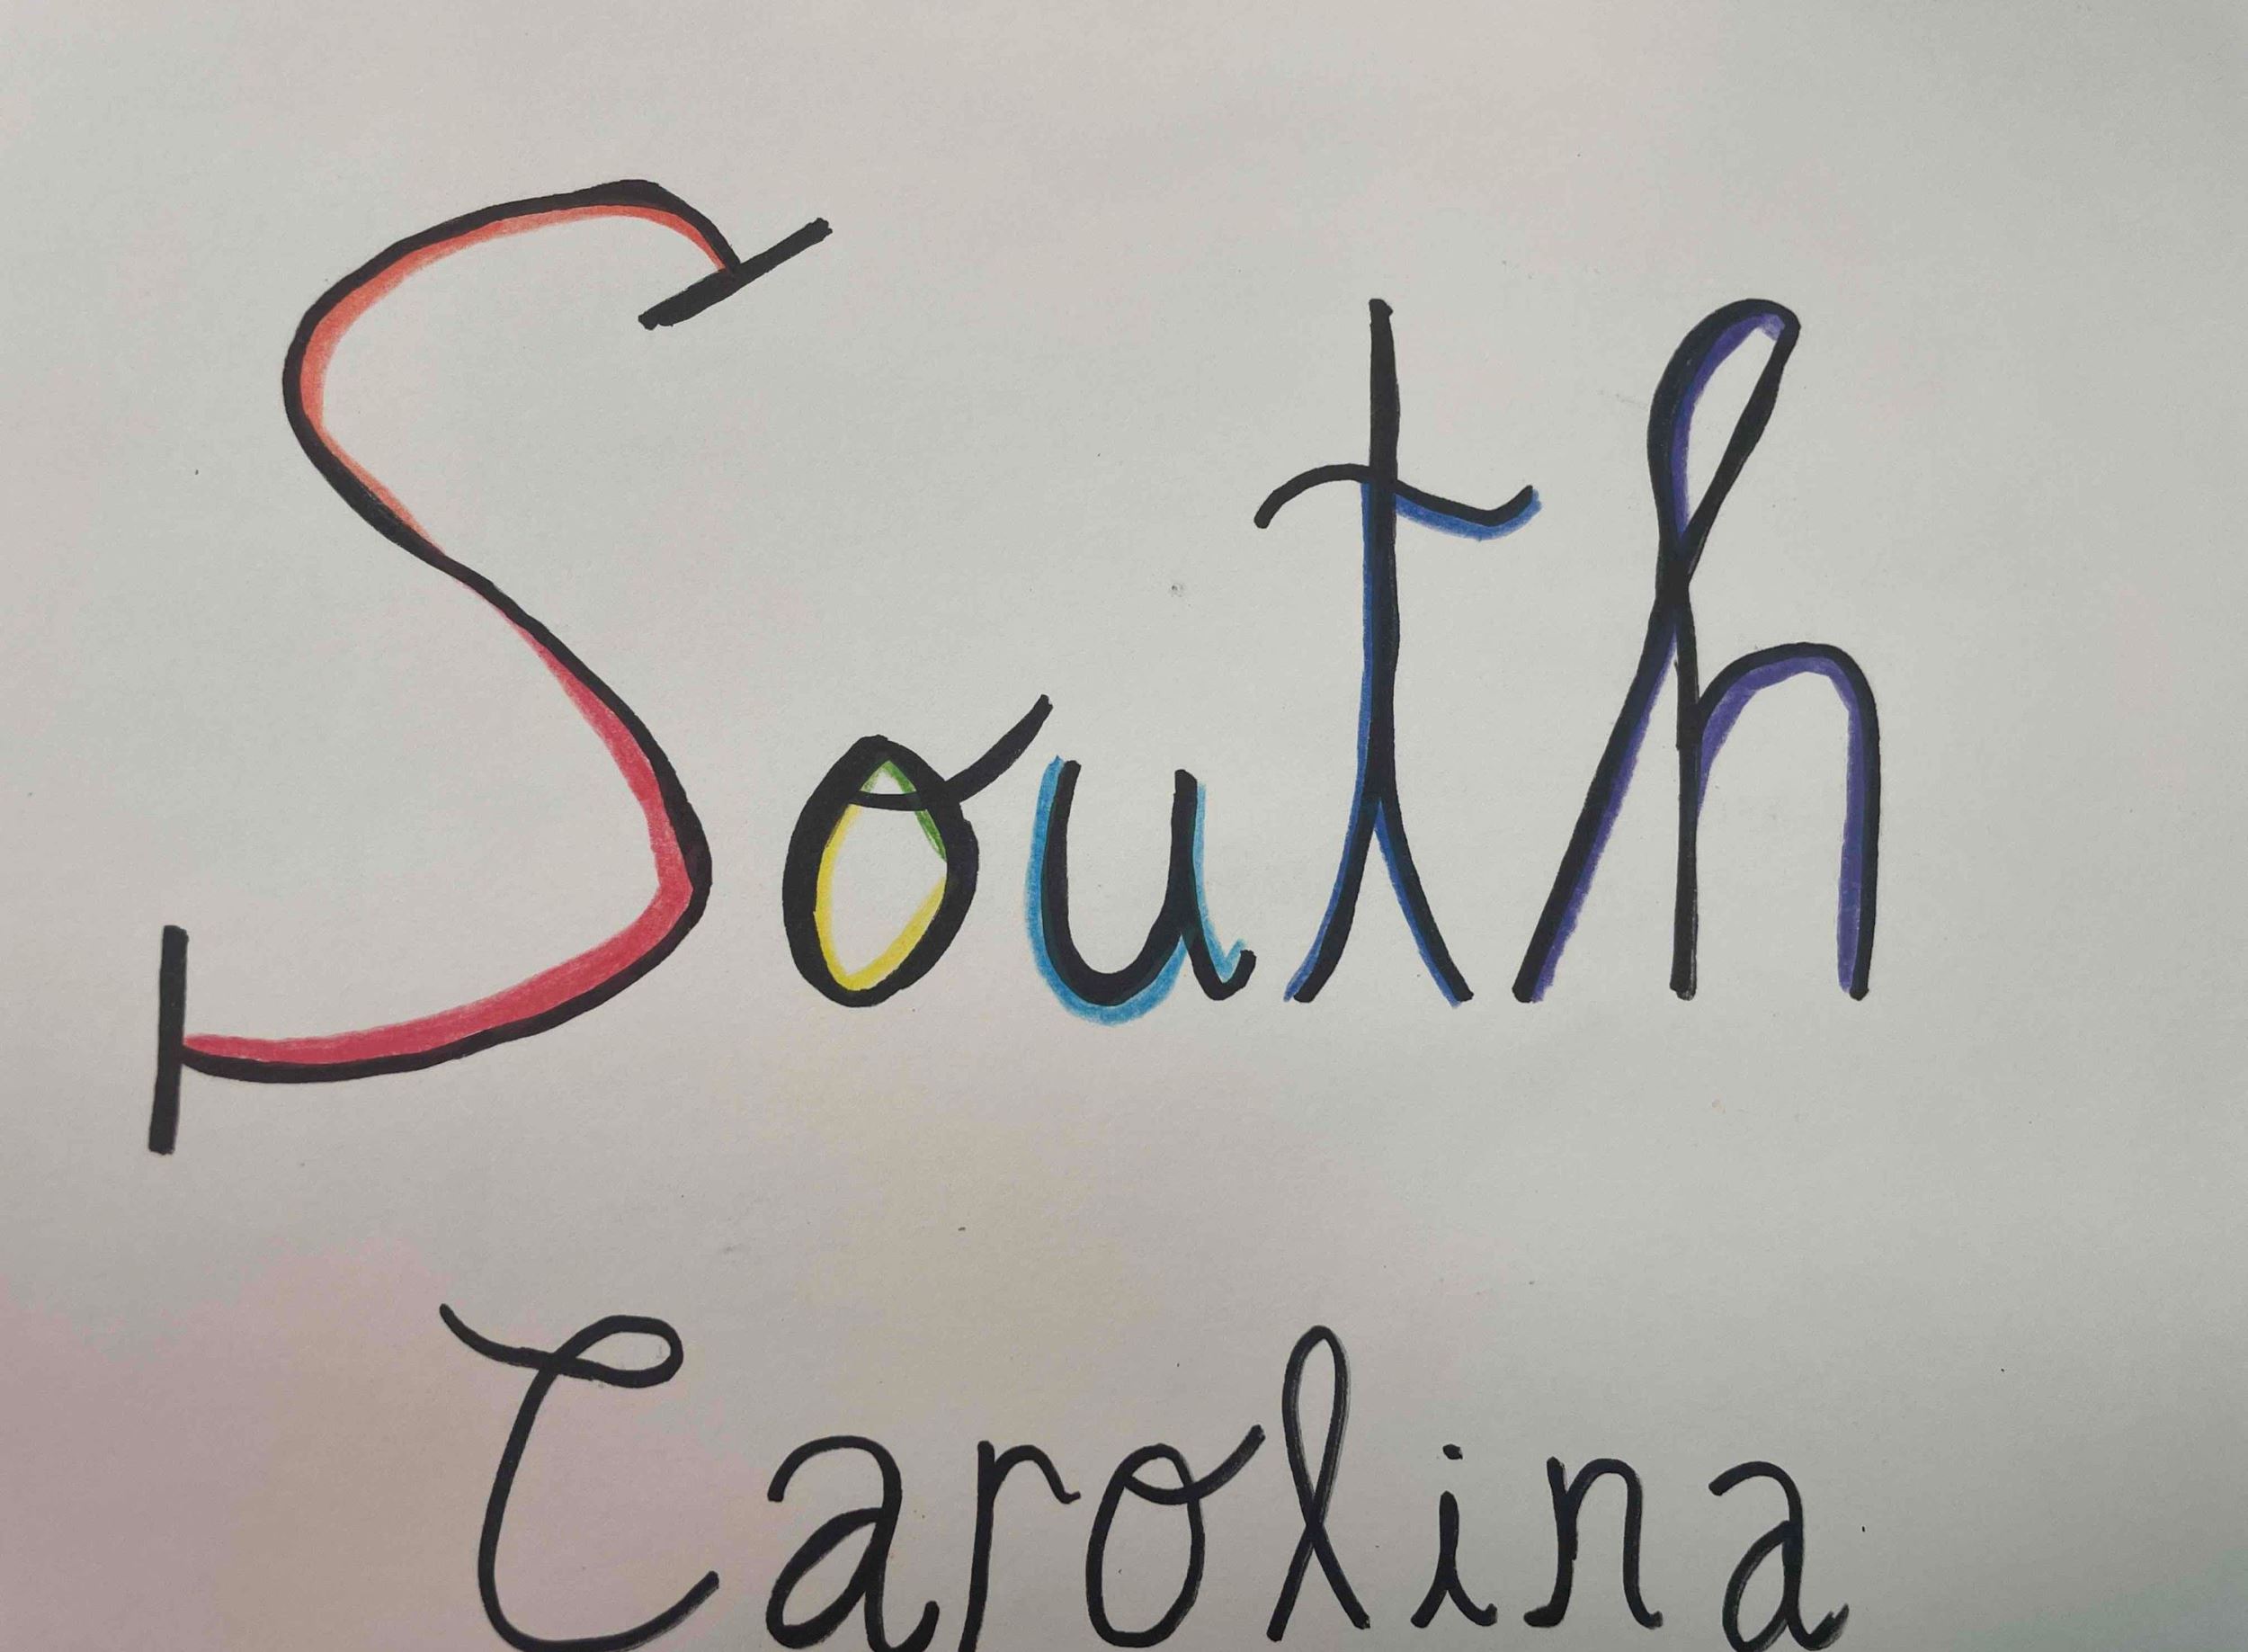 South
Carolina